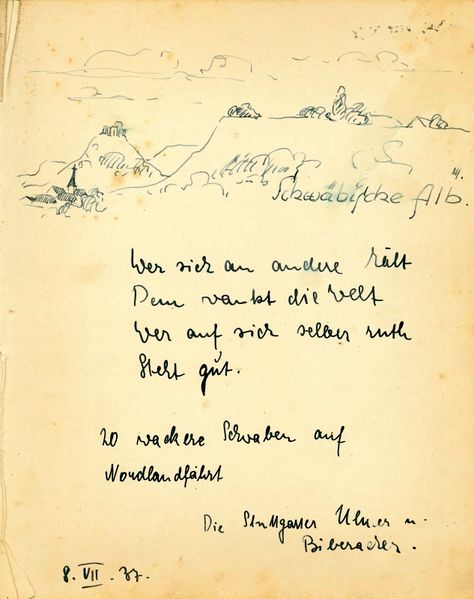 Schwäbische Alb.
Wer sich an andere hält
Dem wankt die Welt
Wer auf sich selber ruth
Steht gut.
20 wackere Schwaben auf
Nordlandfahrt
Die Stuttgarter Ulmer u.
Biberacher.
8. VII. 37.